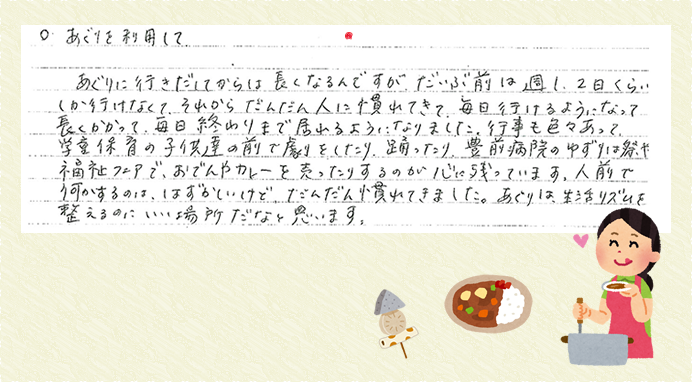 ○ あぐりを利用して
あぐりに行きだしてからは長くなるんですが、だいぶ前は週1、2日くらい
しか行けなくて、それからだんだん人に慣れてきて、毎日行けるようになって
長くかかって、毎日終わりまで居れるようになりました。行事も色々あって、
学童保育の子供達の前で劇をしたり、踊ったり、豊前病院のゆずりは祭や
福祉フェアで、おでんやカレーを売ったりするのが心に残っています。人前で
何かするのは、はずかしいけど、だんだん慣れてきました。あぐりは、生活リズムを
整えるのにいい場所だなと思います。